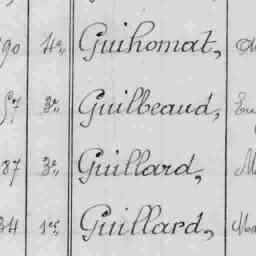 90 4e, Guihomat,
57 3e, Guilbeaud,
87 3e, Guillard,
34 1er, Guillard,